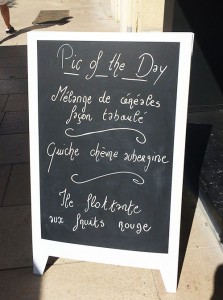 Pic of the Day
Mélange de céréales
façon taboulé
Quiche chèvre aubergine
Île flottante
aux fruits rouge